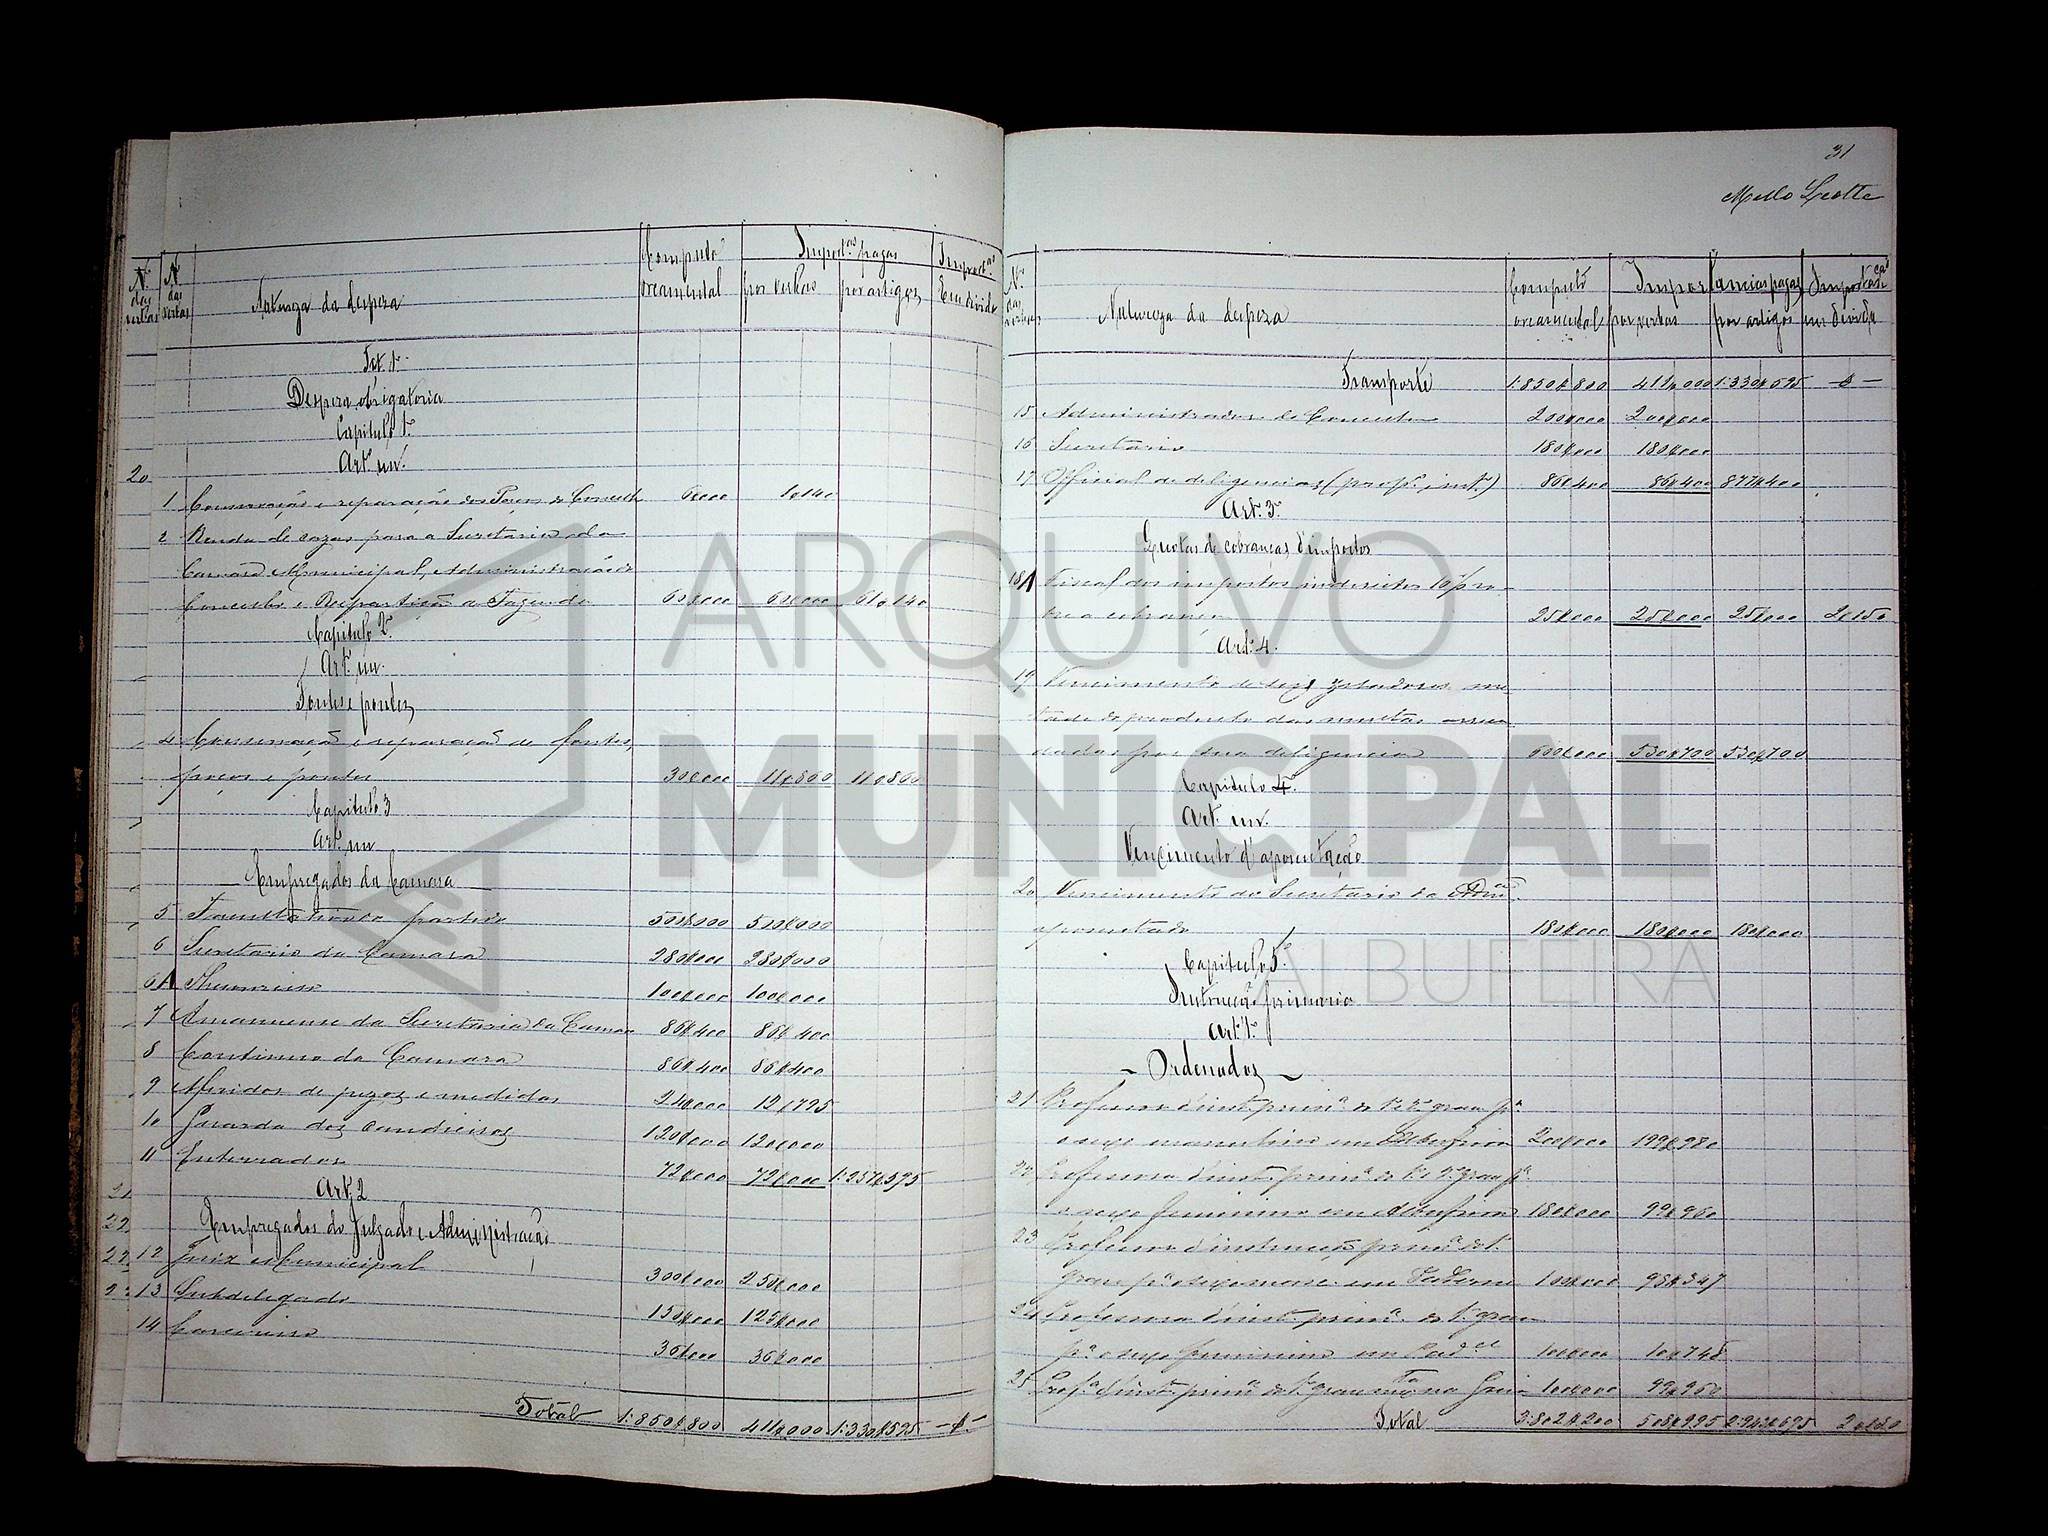 Nº das verbas
Nº das verbas
Natureza da despeza
Computo orcamental
Import.as pagas
por verbas
por artigos
Import.as Em divida
Tit 1º
Despeza obrigatoria
Capitulo 1º
Artº un.
20
1 Conservação e reparação dos Paços do Concelho 6$000 1$140
2 Renda de cazas para a Secretaria da
Camara Municipal, Administração do
Concelho e Repartição de Fazenda 60$000 60$000 61$140
Capitulo 2º
Artº un.
Fontes e pontes
4 Conservação e reparação de fontes,
poços e pontes 30$000 11$860 11$860
Capitulo 3
Artº un
Empregados da Camara
5 Facultativo de partido 500$000 500$000
6 Secretario da Camara 280$000 280$000
6A Thesoureiro 100$000 100$000
7 Amanuense da Secretaria da Camara 86$400 86$400
8 Continuo da Camara 86$400 86$400
9 Aferidor de pezos e medidas 24$000 12$795
10 Guarda dos candieiros 120$000 120$000
11 Enterrador 72$000 72$000 1:257$595
Artº 2
Empregados do Julgado e Administração
12 Juiz Municipal 300$000 250$000
13 Subdelegado 150$000 125$000
14 Carcereiro 36$000 36$000
Total 1:850$800 411$000 1:330$595 -$-
31
Mello Leotte
Nº das verbas
Natureza da despeza
Computo orcamental
Importancias pagas
por verbas
por artigos
Importancias em divida
Transporte 1:850$800 411$000 1:330$595 -$-
15 Administrador do Concelho 200$000 200$000
16 Secretario 180$000 180$000
17 Official de deligencias 86$400 86$400 877$400
Artº 3º
Quotas de cobranças d'impostos
18A Fiscal dos impostos indirectos 10% so-
bre a cobrança 25$000 25$000 25$000 2$150
Artº 4.
19 Vencimento de seis zeladores me-
tade do producto das multas arreca-
dadas por sua deligencia 600$000 530$700 530$700
Capitulo 4º
Artº un.
Vencimento d'aposentação
20 Vencimento do Secretario da Admª
aposentado 180$000 180$000 180$000
Capitulo 5º
Instrucção primaria
Artº 1º
- Ordenados -
21 Professor d'inst. primª do 1º e 2º grau pª
o sexo masculino em Albufeira 200$000 199$980
22 Professora d'inst. primª do 1º e 2º grau pª
o sexo feminino em Albufeira 180$000 99$960
23 Professor d'instrucção primª do 1º
grau pª o sexo masc. em Paderne 100$000 98$347
24 Professora d'inst. primª do 1º grau
pª o sexo feminino em Pad.e 100$000 10$748
25 Prof.ª d'inst. primª do 1º grau na Guia 100$000 99$960
Total 2:802$200 508$995 2:943$695 2$150
ARQUIVO
MUNICIPAL
ALBUFEIRA